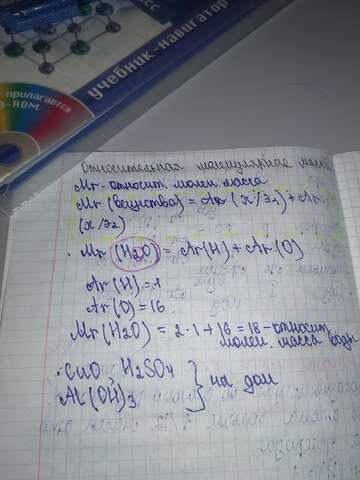 класс
учебник-навигатор
прилагается
CD-ROM
Относительная молекулярная масса
Mr - относит. молек. масса
Mr (вещества) = Ar (х/э1) + Ar
(х/э2)
• Mr (H2O) = Ar(H) + Ar(O)
Ar (H) = 1
Ar (O) = 16
Mr (H2O) = 2·1 + 16 = 18 - относит
молек. масса воды
• CuO, H2SO4
Al(OH)3
на дом